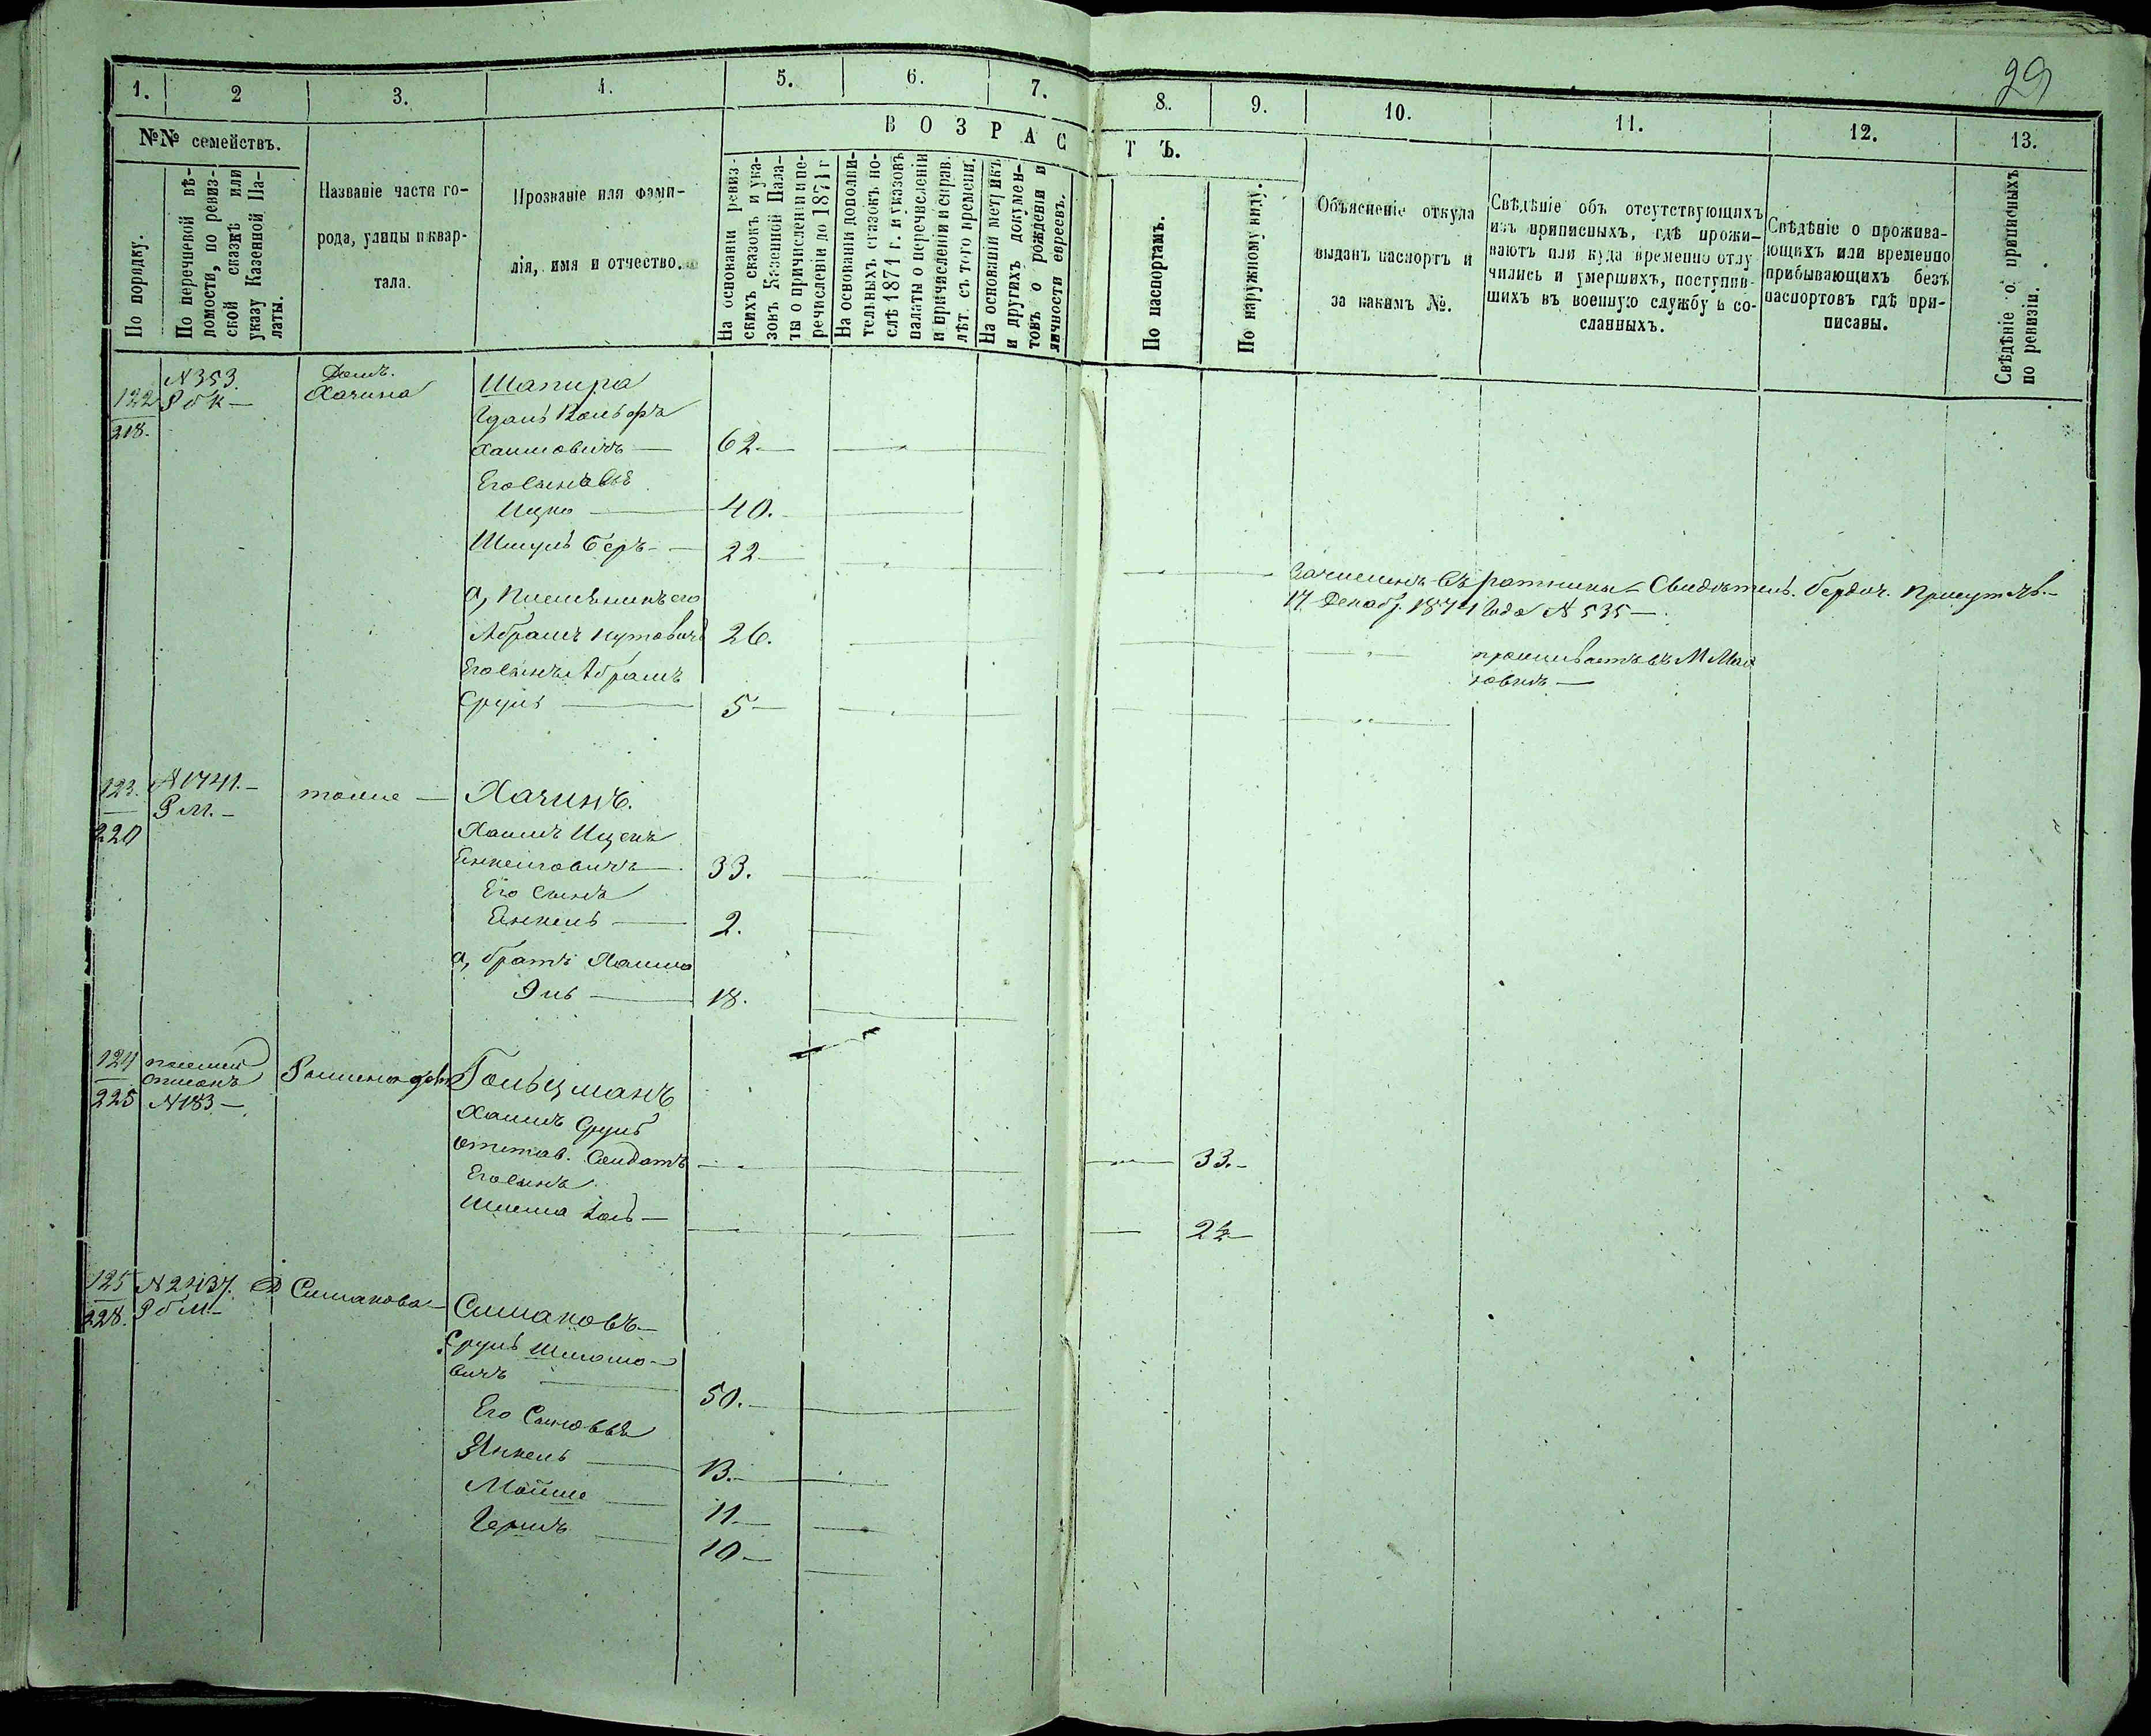 29
1.
2
3.
4.
5.
6.
7.
8.
9.
10.
11.
12.
13.
№№ семействъ.
По порядку.
По перечневой вѣ-
домости, по ревиз-
ской сказкѣ или
указу Казенной Па-
латы.
Названіе части го-
рода, улицы и квар-
тала.
Прозваніе или фами-
лія, имя и отчество.
ВОЗРАСТЪ.
На основаніи ревиз-
скихъ сказокъ и ука-
зовъ Казенной Пала-
ты о причисленіи и пе-
речисленіи до 1871 г
На основаніи дополни-
тельныхъ сказокъ по-
слѣ 1871 г. и указовъ
палаты о перечисленіи
и причисленіи и справ.
лѣт. съ того времени.
На основаніи метрикъ
и другихъ докумен-
товъ о рожденіи и
личности евреевъ.
По паспортамъ.
По наружному виду.
Объясненіе откуда
выданъ паспортъ и
за какимъ №.
Свѣдѣніе объ отсутствующихъ
изъ приписныхъ, гдѣ прожи-
ваютъ или куда временно отлу-
чились и умершихъ, поступив-
шихъ въ военную службу и со-
сланныхъ.
Свѣдѣніе о прожива-
ющихъ или временно
прибывающихъ безъ
паспортовъ гдѣ при-
писаны.
Свѣдѣніе о приписныхъ
по ревизіи.
122
218.
№353.
Р б К
Домъ.
Хачина
Шапира
Вольфъ
Хаимовичъ — 62
Его сыновья
Ицко — 40.
Шмуль Беръ — 22
Зачисленъ въ ратники Свидѣтель. Бердич. Присутств.
17 Декабр. 1874 года №535 —
а, племянникъ его
Абрамъ 26.
проживаетъ въ М
Его сынъ Абрамъ
Сруль — 5
123.
220
№1741.
Р М.
тоже
Хачинъ.
Хаимъ Ицекъ
Янкелевичъ — 33.
Его сынъ
Янкель — 2.
а, братъ Хаима
Эль — 18.
124
225
№183
Гольцманъ
Хаимъ Сруль
отстав. Солдатъ — 33.
Его сынъ
2½
125
228.
№2437.
Р б М
Д Симанова
Симановъ
Сруль Шлиомо-
вичъ — 50.
Его сыновья
Янкель — 13.
Мойше — 11
Гершъ — 10